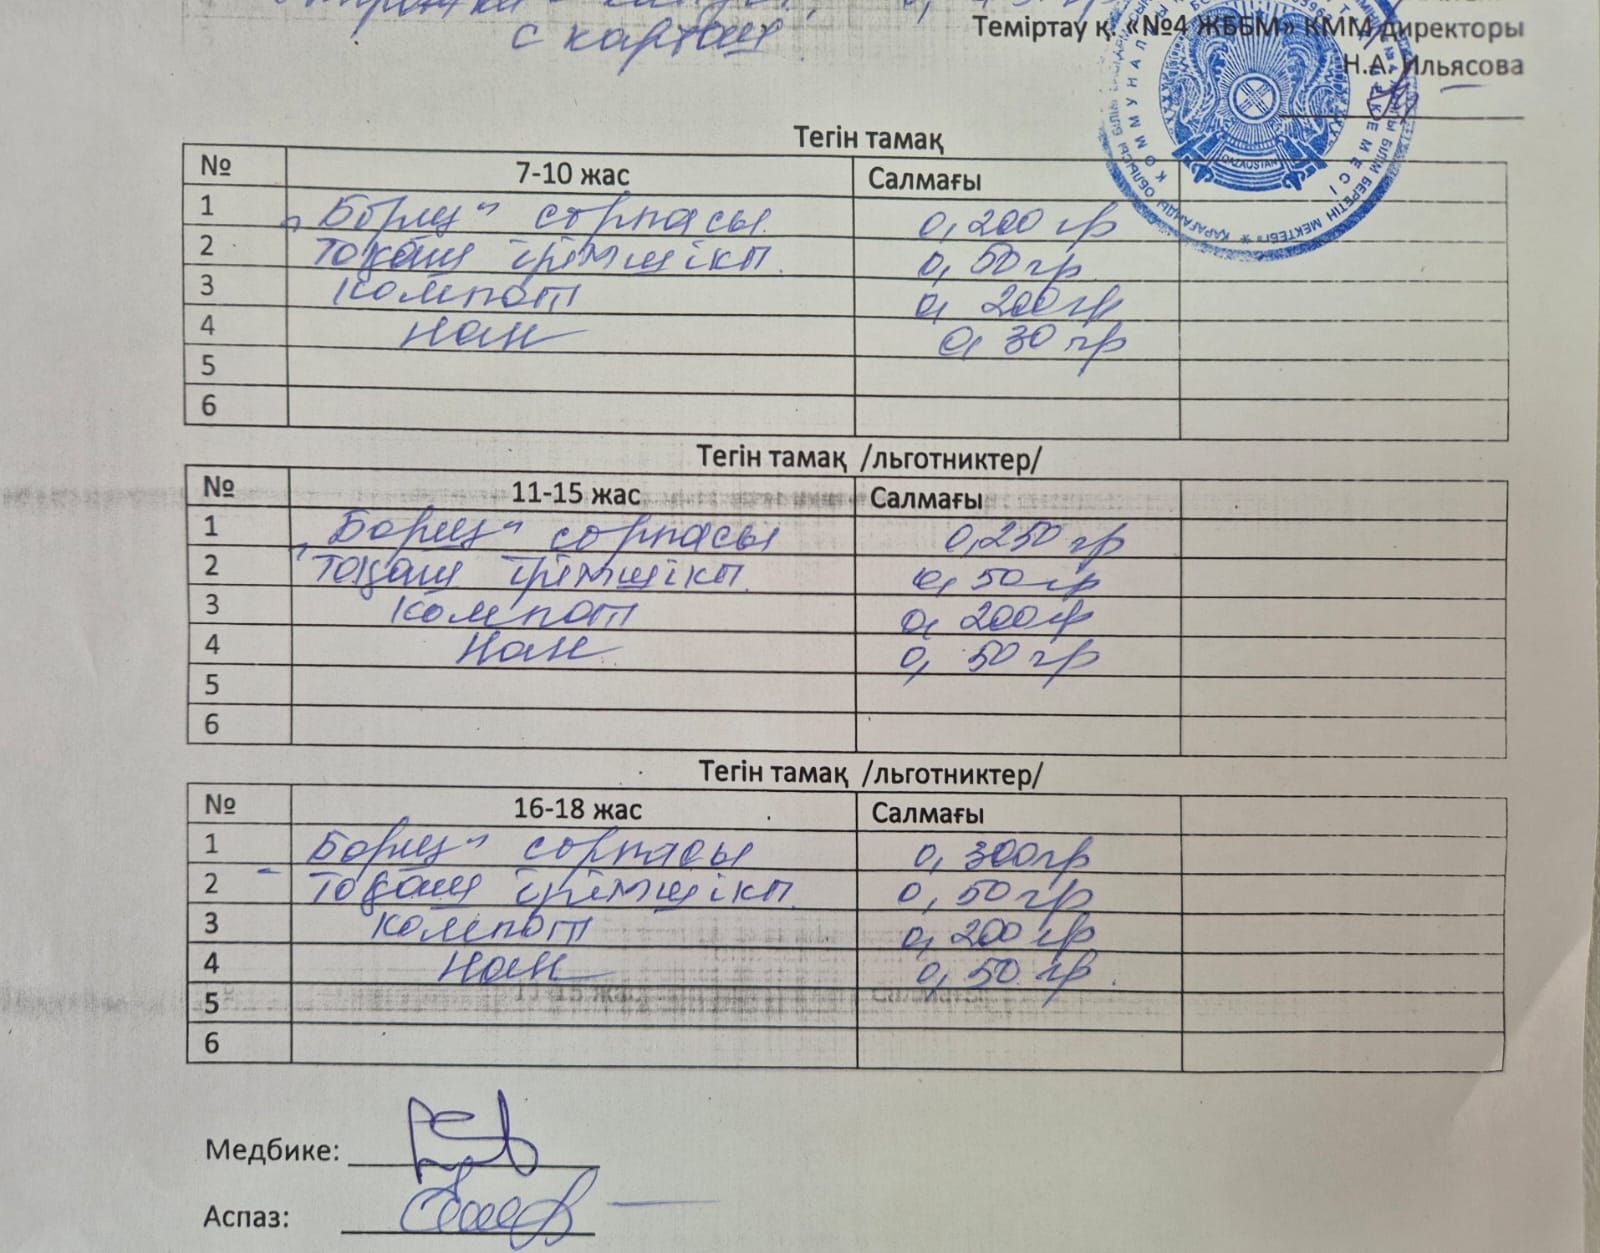 с картош
Теміртау қ. «№4 ЖББМ» КММ директоры
Н.А. Ильясова
Тегін тамақ
№ 7-10 жас Салмағы
1 „Борщ" сорпасы 0,200 гр
2 Тоқаш ірімшікп. 0,50 гр
3 Компот 0,200 гр
4 Нан 0,30 гр
5
6
Тегін тамақ /льготниктер/
№ 11-15 жас Салмағы
1 „Борщ" сорпасы 0,250 гр
2 Тоқаш ірімшікп. 0,50 гр
3 Компот 0,200 гр
4 Нан 0,50 гр
5
6
Тегін тамақ /льготниктер/
№ 16-18 жас Салмағы
1 Борщ" сорпасы 0,300 гр
2 Тоқаш ірімшікп. 0,50 гр
3 Компот 0,200 гр
4 Нан 0,50 гр.
5
6
Медбике:
Аспаз:
QAZAQSTAN